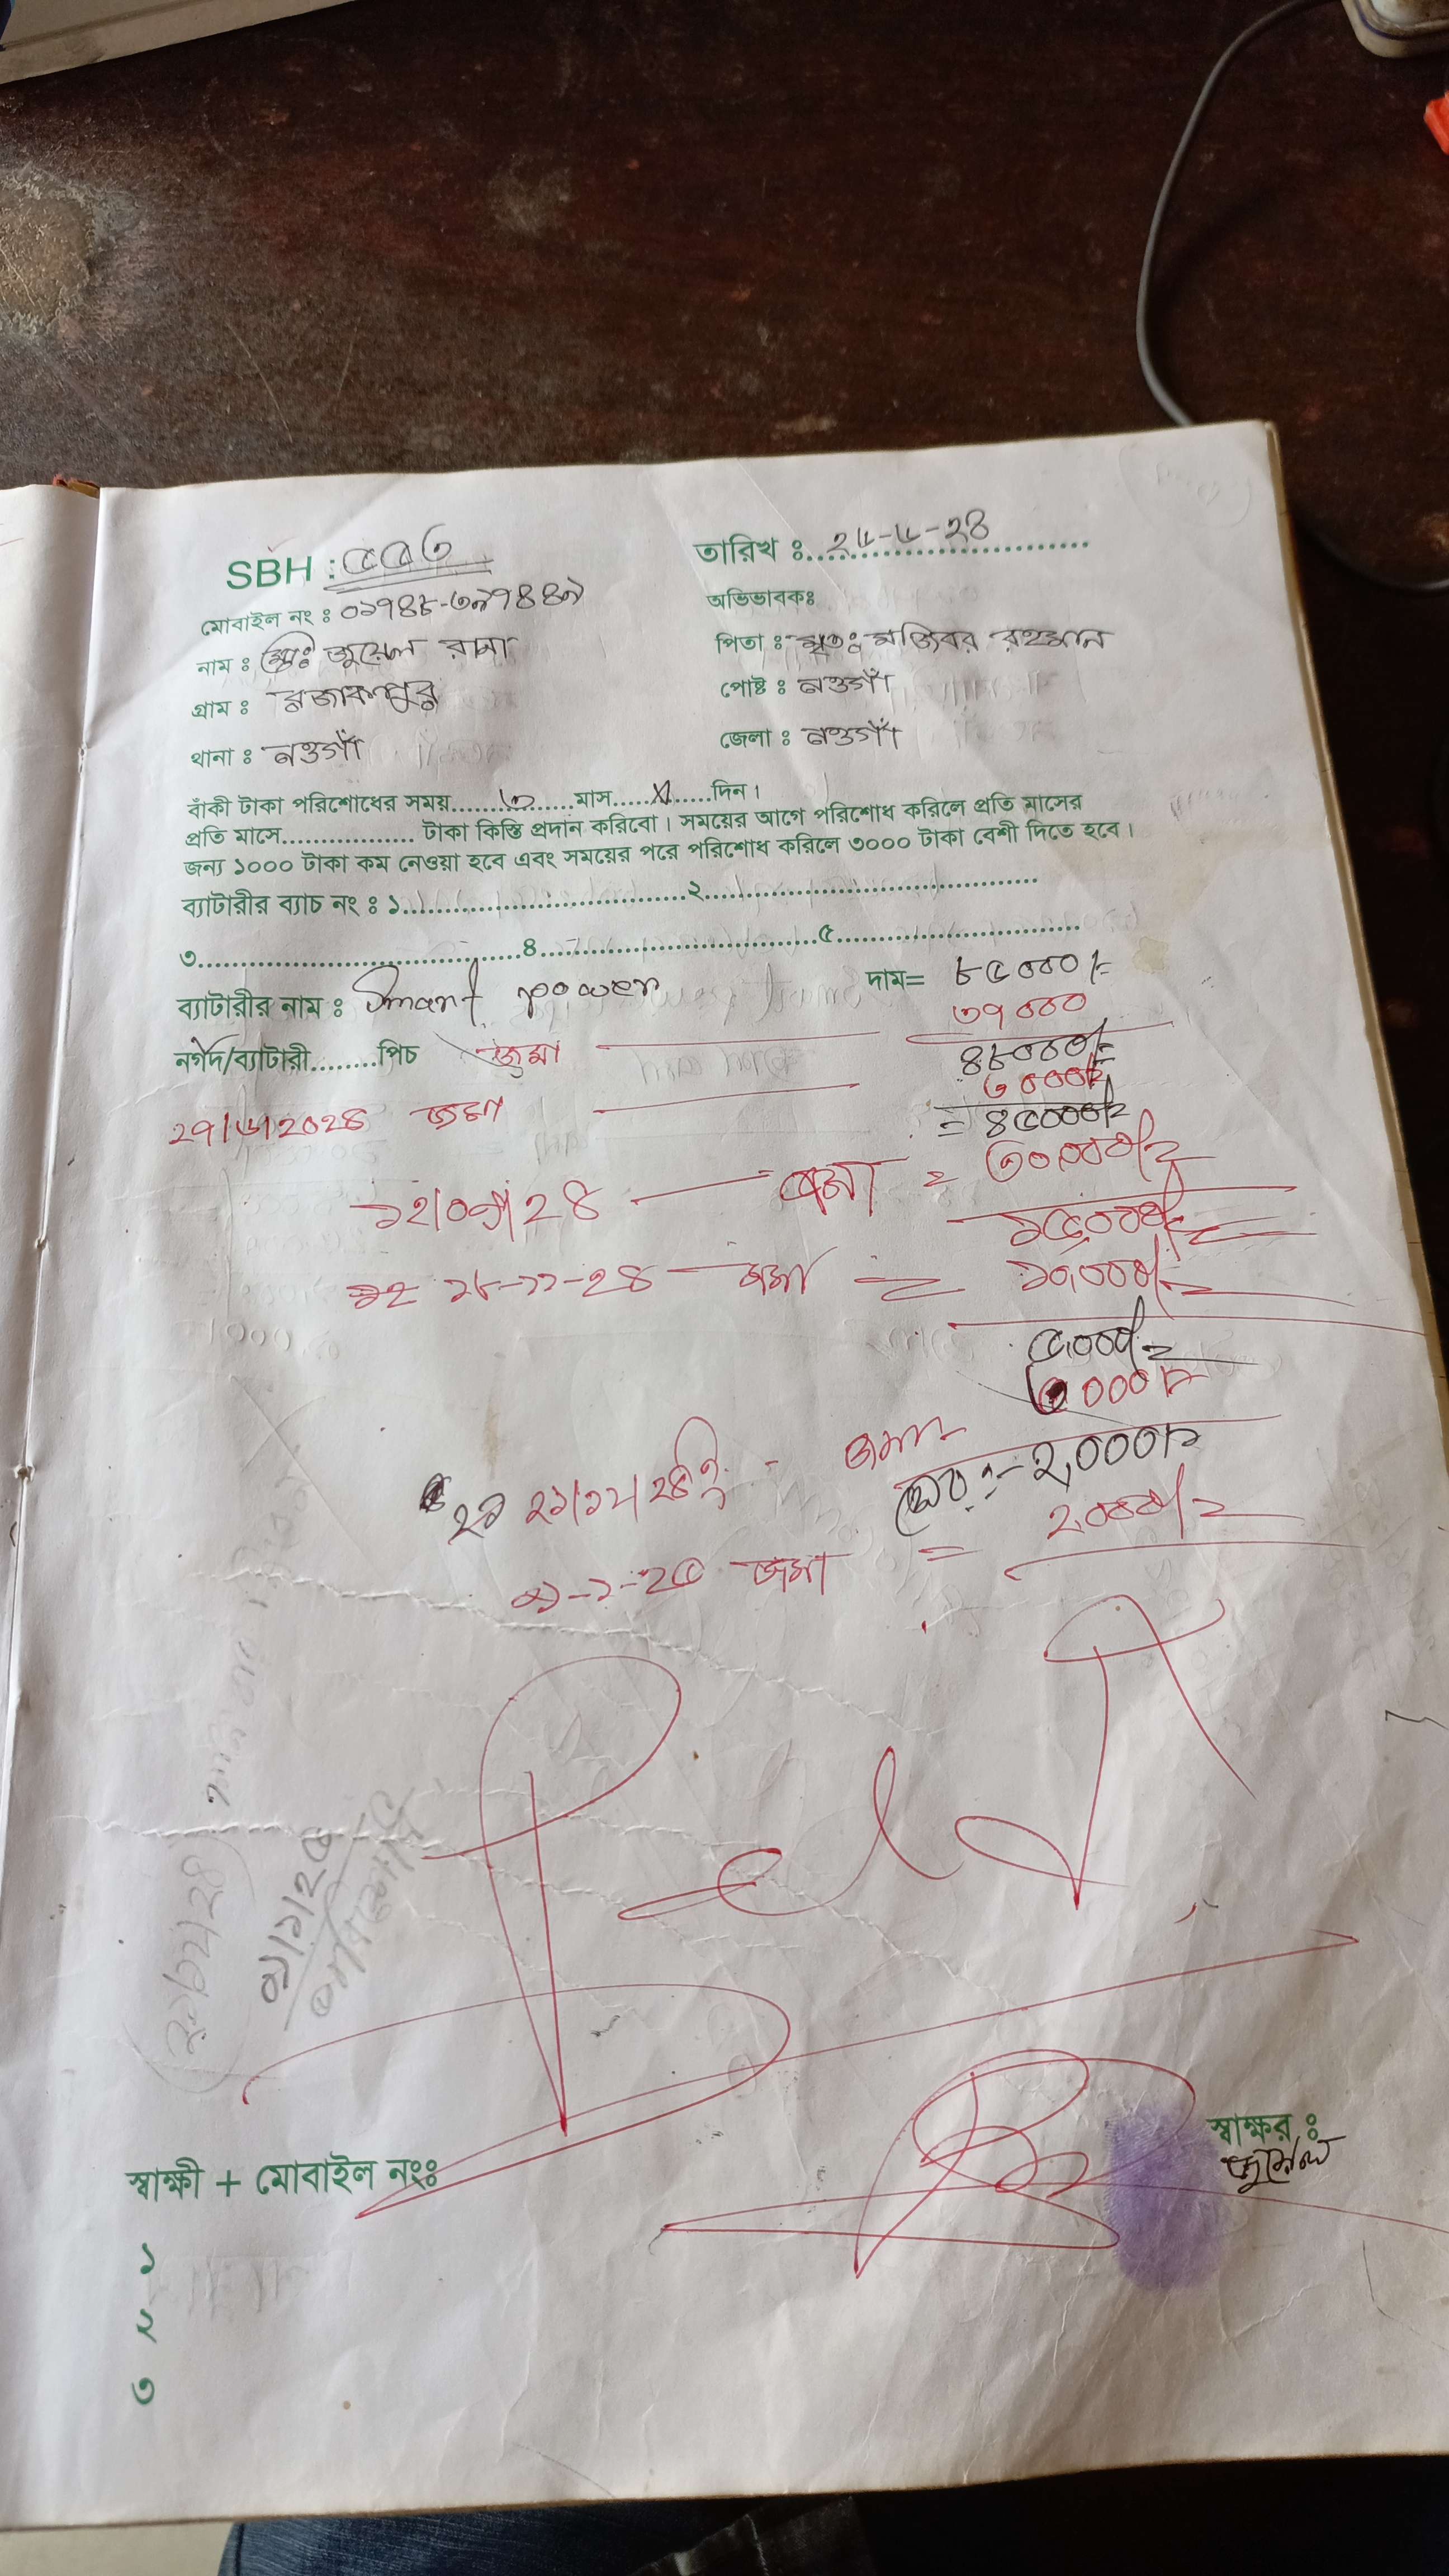 SBH : ৫৫৩
তারিখ ঃ ২৫-৫-২৪
মোবাইল নং ঃ ০১৭৪৮-৩৯৭৪৪৯
অভিভাবকঃ
নাম ঃ মোঃ জুয়েল রানা
পিতা ঃ মৃতঃ মজিবর রহমান
গ্রাম ঃ রজাকপুর
পোষ্ট ঃ নওগাঁ
থানা ঃ নওগাঁ
জেলা ঃ নওগাঁ
বাঁকী টাকা পরিশোধের সময়........৩........মাস.....X.....দিন।
প্রতি মাসে.................. টাকা কিস্তি প্রদান করিবো। সময়ের আগে পরিশোধ করিলে প্রতি মাসের
জন্য ১০০০ টাকা কম নেওয়া হবে এবং সময়ের পরে পরিশোধ করিলে ৩০০০ টাকা বেশী দিতে হবে।
ব্যাটারীর ব্যাচ নং ঃ ১.................................২.......................................
৩.......................................৪...................................৫................................
ব্যাটারীর নাম ঃ Smart power দাম= ৮৫০০০/=
নগদ/ব্যাটারী........পিচ জমা ৩৭০০০
৪৮০০০/=
২৭/৬/২০২৪ জমা ৩০০০/=
= ৪৫০০০/=
১২/০৯/২৪ জমা = ৩০,০০০/=
১৫,০০০/=
১৮-১১-২৪ জমা = ১০,০০০/=
৫,০০০/=
৩০০০/=
২১/১২/২৪ইং - জমা
২,০০০/=
৯-১-২৫ জমা = ২,০০০/=
Paid
৯/১/২৫
স্বাক্ষর ঃ
জুয়েল
স্বাক্ষী + মোবাইল নংঃ
১
২
৩